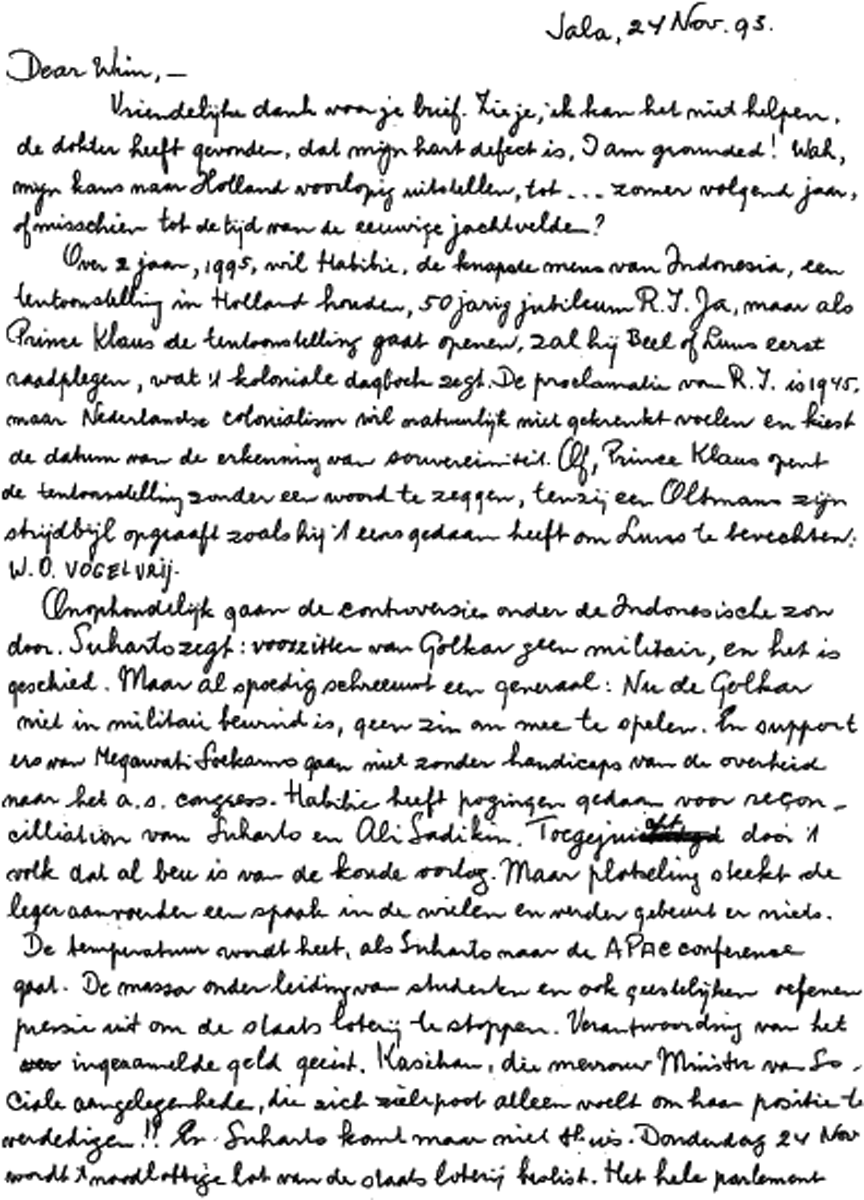 Jala, 24 Nov. 93.
Dear Wim, —
Vriendelijke dank voor je brief. Zie je, ik kan het niet helpen,
de dokter heeft gevonden, dat mijn hart defect is, I am grounded! Wah,
mijn kans naar Holland voorlopig uitstellen, tot ... zomer volgend jaar,
of misschien tot de tijd van de eeuwige jachtvelden?
Over 2 jaar, 1995, wil Habibie, de knapste mens van Indonesia, een
tentoonstelling in Holland houden, 50 jarig jubileum R.I. Ja, maar als
Prince Klaus de tentoonstelling gaat openen, zal hij Beel of Luns eerst
raadplegen, wat 't koloniale dagboek zegt. De proclamatie van R.I. is 1945,
maar Nederlandse colonialism wil natuurlijk niet gekrenkt voelen en kiest
de datum van de erkenning van souvereiniteit. Of, Prince Klaus opent
de tentoonstelling zonder een woord te zeggen, tenzij een Oltmans zijn
strijdbijl opgraaft zoals hij 't eens gedaan heeft om Luns te bevechten:
W.O. VOGELVRIJ.
Onophoudelijk gaan de controversies onder de Indonesische zon
door. Suharto zegt: voorzitter van Golkar geen militair, en het is
geschied. Maar al spoedig schreeuwt een generaal: Nu de Golkar
niet in militair bewind is, geen zin om mee te spelen. En support
ers van Megawati Soekarno gaan niet zonder handicaps van de overheid
naar het a.s. congress. Habibie heeft pogingen gedaan voor recon-
cilliation van Suharto en Ali Sadikin. Toegejuicht door 't
volk dat al beu is van de koude oorlog. Maar plotseling steekt de
legeraanvoerder een spaak in de wielen en verder gebeurt er niets.
De temperatuur wordt heet, als Suharto naar de APAC conference
gaat. De massa onder leiding van studenten en ook geestelijken oefenen
pressie uit om de staats loterij te stoppen. Verantwoording van het
ingezamelde geld geëist. Kasihan, die mevrouw Minister van So-
ciale aangelegenheden, die zich zielepoot alleen voelt om haar positie te
verdedigen!! En Suharto komt maar niet thuis. Donderdag 24 Nov
wordt 't noodlottige lot van de staats loterij beslist. Het hele parlement